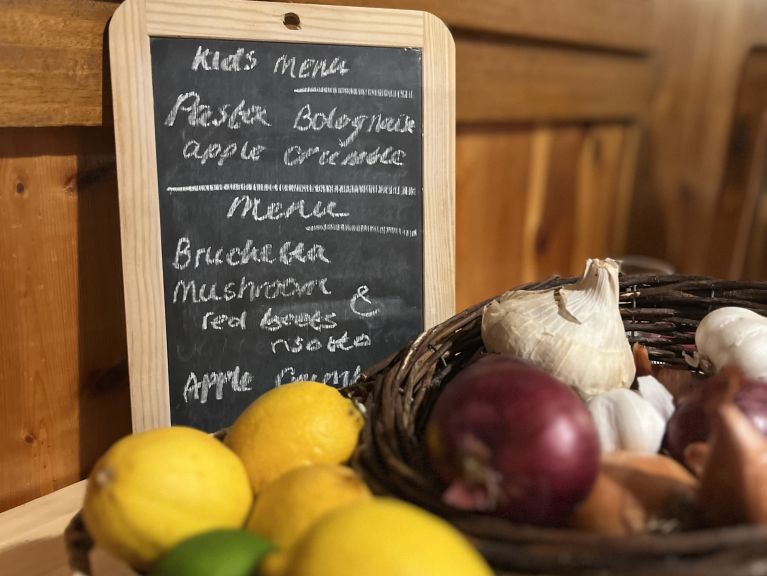 Kids Menu
Pasta Bolognaise
apple crumble
Menu
Bruchetta
Mushroom &
red beets
risotto
Apple